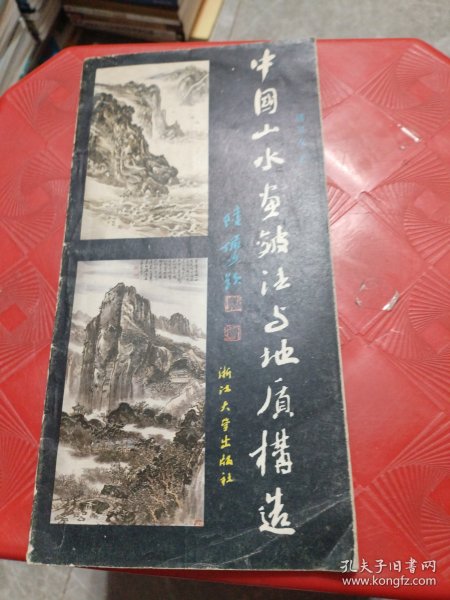 中國山水画皴法与地质構造
陸儼少題
浙江大学出版社
孔夫子旧书网
www.kongfz.com